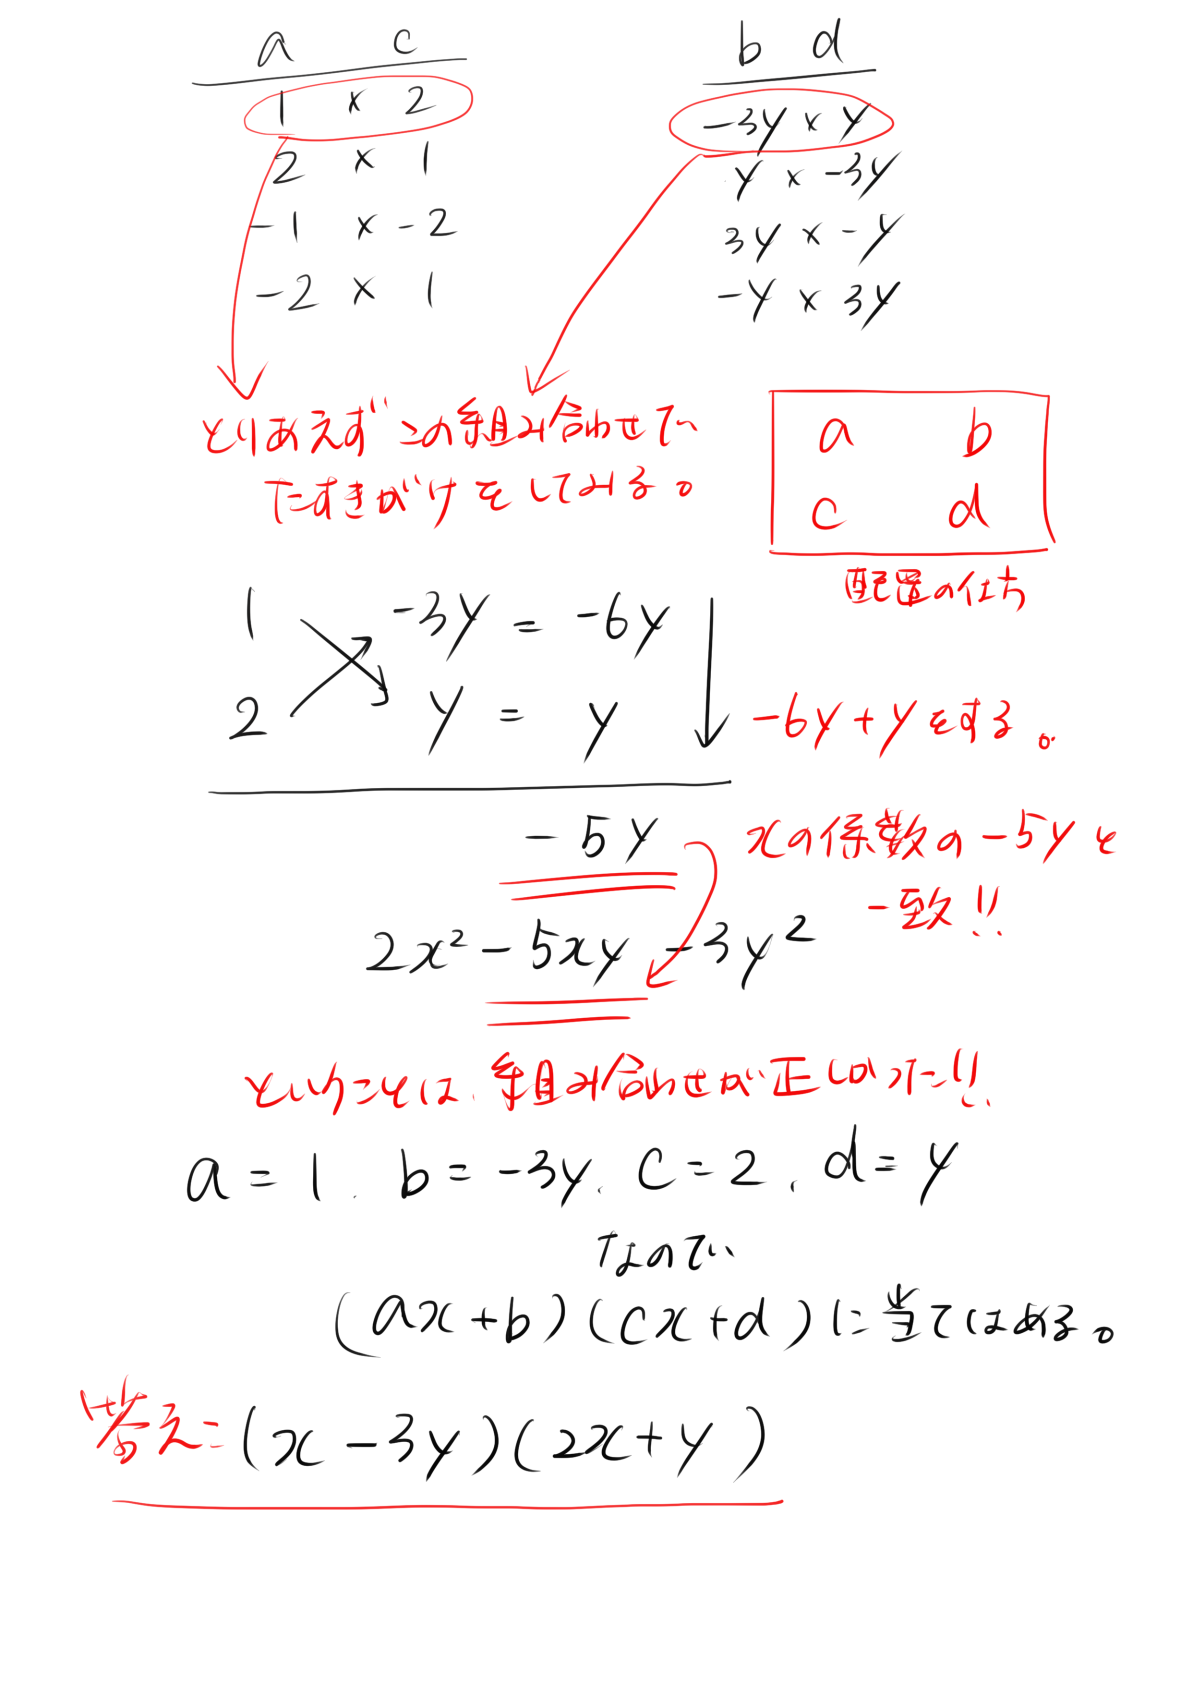 a c
1 × 2
2 × 1
-1 × -2
-2 × 1
b d
-3y × y
y × -3y
3y × -y
-y × 3y
とりあえずこの組み合わせで
たすきがけをしてみる。
a b
c d
配置の仕方
1 -3y = -6y
2 y = y
-6y+yをする。
-5y
xの係数の-5yと
一致!!
2x² -5xy -3y²
ということは、組み合わせが正しかった!!
a=1、b=-3y、c=2、d=y
なので
(ax+b)(cx+d)に当てはめる。
答え:(x-3y)(2x+y)